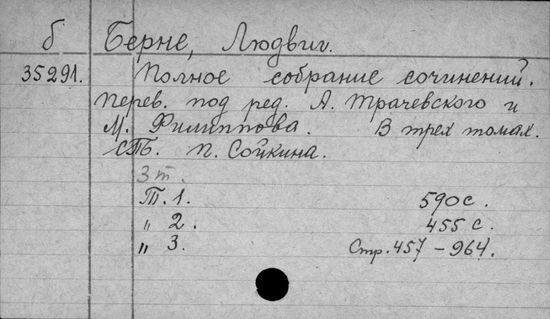 б Берне, Людвиг.
35291. Полное собрание сочинений.
Перев. под ред. А. Трачевского и
М. Филиппова. В трех томах.
СПБ. П. Сойкина.
3 т.
Т. 1. 590 с.
„ 2. 455 с.
„ 3. Стр. 457 – 964.